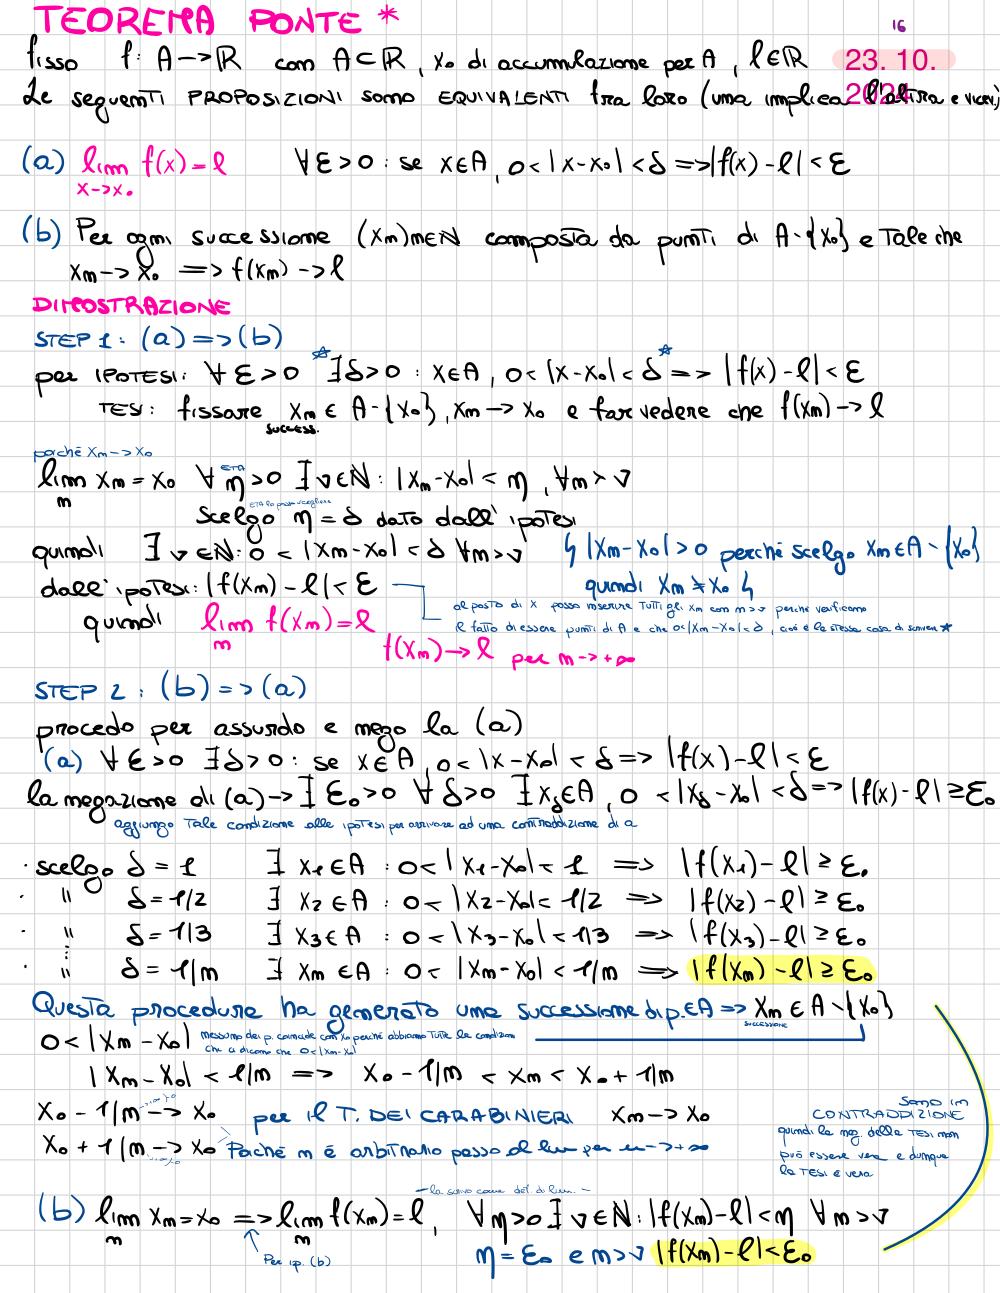 TEOREMA PONTE *
16
fisso f: A->ℝ con A⊂ℝ, x₀ di accumulazione per A, l∈ℝ
23. 10. 2024
Le seguenti PROPOSIZIONI sono EQUIVALENTI tra loro (una implica l'altra e vicev.)
(a) lim f(x) = l ∀ε>0 : se x∈A, 0<|x-x₀|<δ =>|f(x)-l|<ε
x->x₀
(b) Per ogni successione (xn)n∈N composta da punti di A-{x₀} e tale che
xn-> x₀ => f(xn) -> l
DIMOSTRAZIONE
STEP 1: (a) => (b)
per IPOTESI: ∀ε>0 ☆∃δ>0 : x∈A, 0<|x-x₀|<δ☆ => |f(x)-l|<ε
TESI: fissare xn ∈ A-{x₀}, xn-> x₀ e far vedere che f(xn)->l
success.
perché xn-> x₀
lim xn = x₀ ∀η>0 ∃ν∈N: |xn-x₀|<η, ∀n>ν
n
ETA
ETA la posso scegliere
scelgo η=δ dato dall'ipotesi
quindi ∃ν∈N: 0<|xn-x₀|<δ ∀n>ν
↯ |xn-x₀|>0 perché scelgo xn∈A-{x₀}
quindi xn ≠ x₀ ↯
dall'ipotesi: |f(xn)-l|<ε
al posto di x posso inserire tutti gli xn con n>ν perché verificano
il fatto di essere punti di A e che 0<|xn-x₀|<δ, cioè è la stessa cosa di scrivere ★
quindi lim f(xn)=l
n
f(xn)->l per n->+∞
STEP 2: (b) => (a)
procedo per assurdo e nego la (a)
(a) ∀ε>0 ∃δ>0: se x∈A, 0<|x-x₀|<δ => |f(x)-l|<ε
la negazione di (a)-> ∃ε₀>0 ∀δ>0 ∃xδ∈A, 0<|xδ-x₀|<δ => |f(x)-l|≥ε₀
aggiungo tale condizione alle ipotesi per arrivare ad una contraddizione di a
· scelgo δ=1 ∃ x₁∈A : 0<|x₁-x₀|<1 => |f(x₁)-l|≥ε₀
· " δ=1/2 ∃ x₂∈A : 0<|x₂-x₀|<1/2 => |f(x₂)-l|≥ε₀
· " δ=1/3 ∃ x₃∈A : 0<|x₃-x₀|<1/3 => |f(x₃)-l|≥ε₀
⋮
· " δ=1/n ∃ xn∈A : 0<|xn-x₀|<1/n => |f(xn)-l|≥ε₀
Questa procedura ha generato una successione di p.∈A => xn∈A-{x₀}
successione
0<|xn-x₀| nessuno dei p. coincide con x₀ perché abbiamo tutte le condizioni
che ci dicono che 0<|xn-x₀|
|xn-x₀|<1/n => x₀-1/n < xn < x₀+1/n
x₀-1/n -> x₀ per il T. DEI CARABINIERI xn-> x₀
x₀+1/n -> x₀ Poiché n è arbitrario passo al lim per n->+∞
sono in
CONTRADDIZIONE
quindi la neg. della TESI non
può essere vera e dunque
la TESI è vera
-lo scrivo come def. di lim.-
(b) lim xn=x₀ => lim f(xn)=l, ∀η>0 ∃ν∈N: |f(xn)-l|<η ∀n>ν
n n
Per ip. (b)
η=ε₀ e n>ν |f(xn)-l|<ε₀